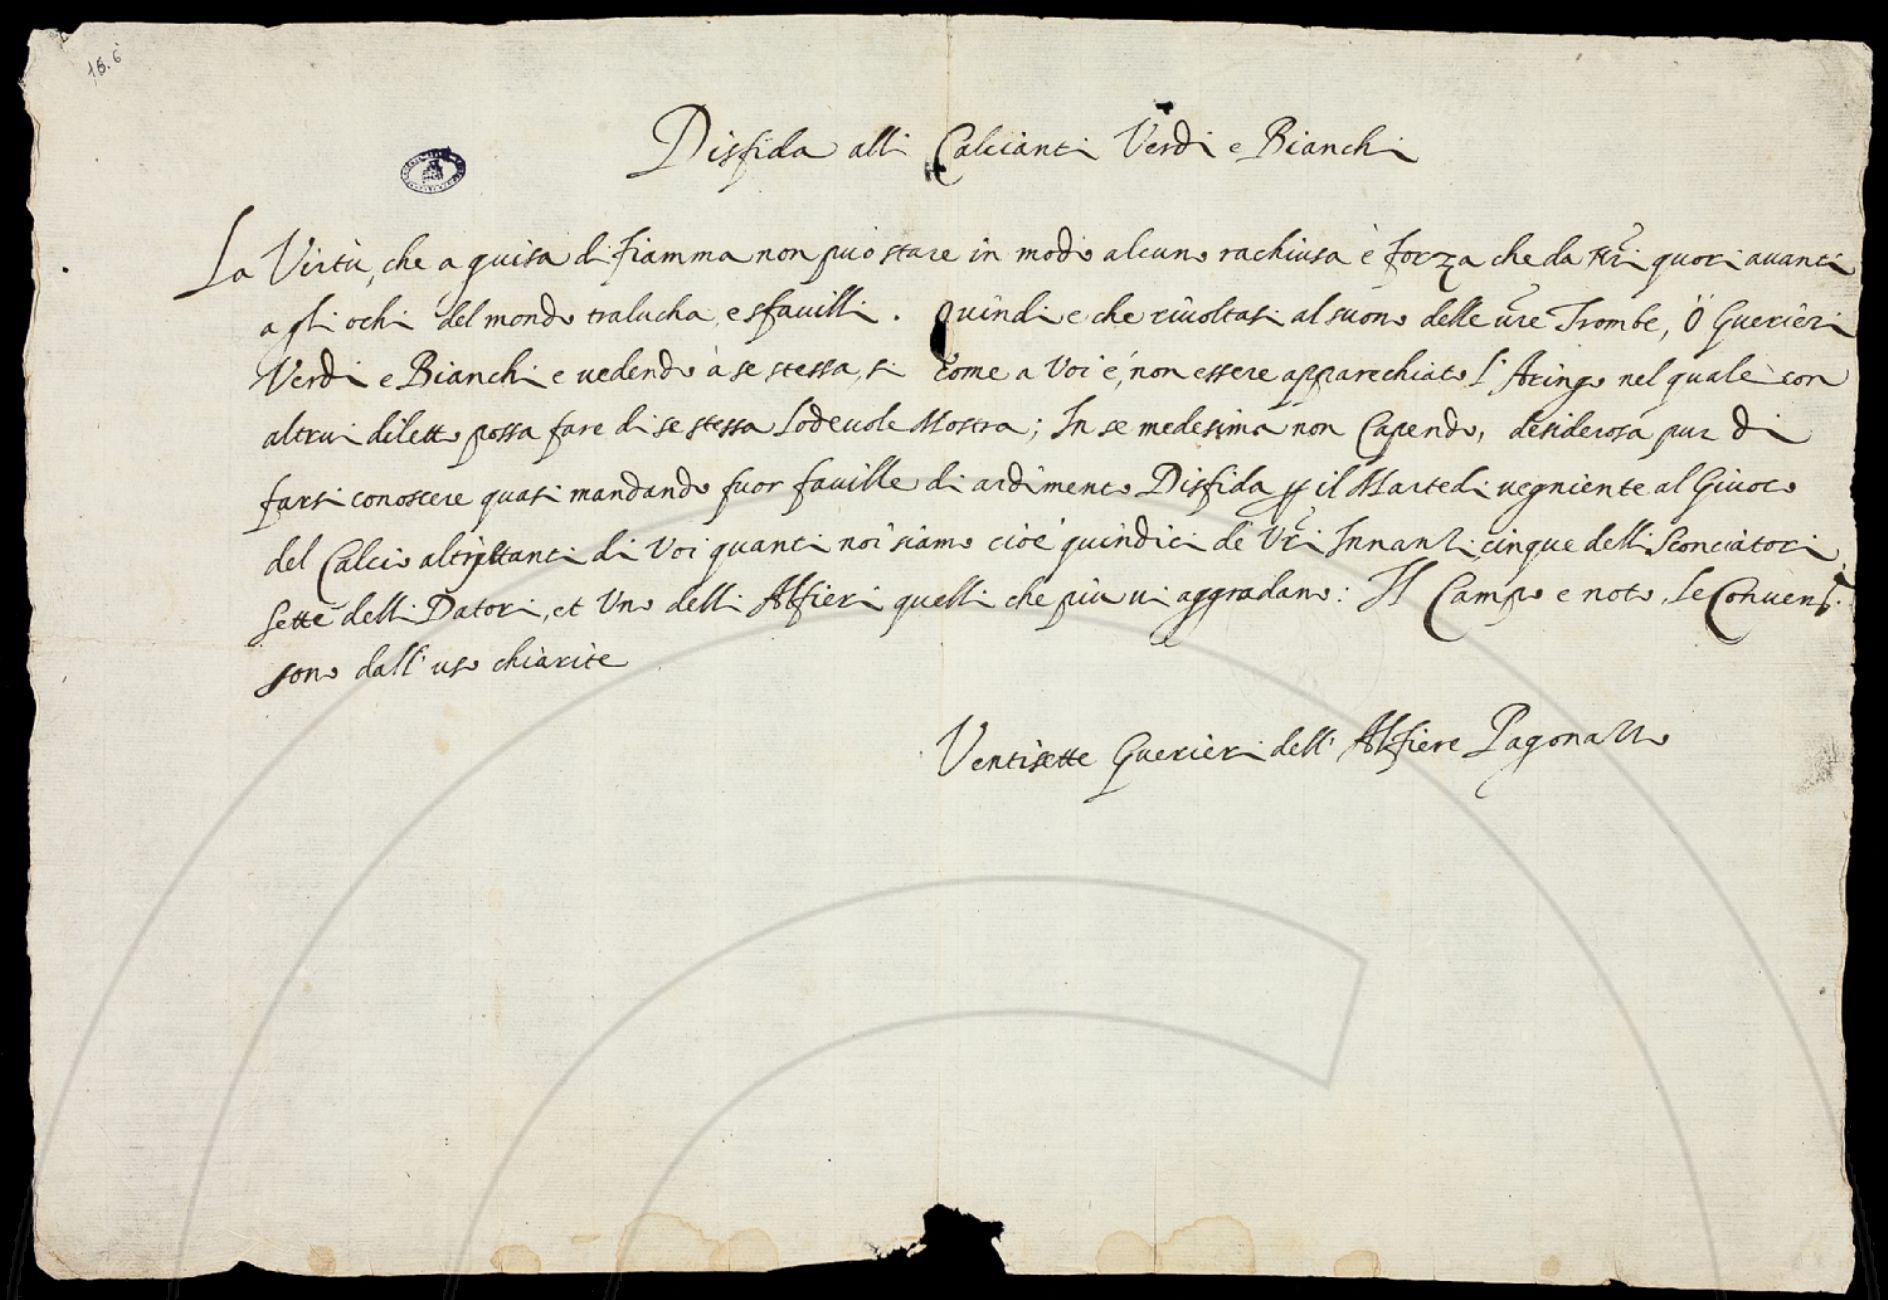 15. 6
Disfida alli Calcianti Verdi e Bianchi
La Virtù, che a guisa di fiamma non può stare in modo alcuno rachiusa è forza che da nr̃i quori auanti
a gli ochi del mondo tralucha, e sfauilli. Quindi e che riuoltasi al suono delle ur̃e Trombe, Ò Guerieri
Verdi e Bianchi e uedendo à se stessa, si come a Voi é, non essere apparechiato l'Aringo nel quale con
altrui diletto possa fare di se stessa Lodeuole Mostra; In se medesima non Capendo, desiderosa pur di
farsi conoscere quasi mandando fuor fauille di ardimento Disfida ꝑ il Martedi uegniente al Giuoco
del Calcio altrettanti di Voi quanti noi siamo cioé quindici de Vr̃i Innanzi, cinque delli Sconciatori,
sette delli Datori, et Uno delli Alfieri quelli che più ui aggradano: Il Campo e noto, le Conuenz.
sono dall'uso chiarite
Ventisette Guerieri dell'Alfiere Pagonazzo